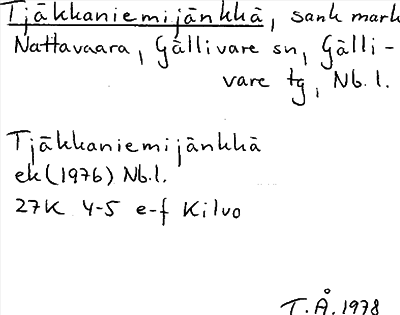 Tjäkkaniemijänkkä, sank mark
Nattavaara, Gällivare sn, Gälli-
vare tg, Nb.l.
Tjäkkaniemijänkkä
ek (1976) Nb.l.
27K 4-5 e-f Kilvo
T.Å. 1978